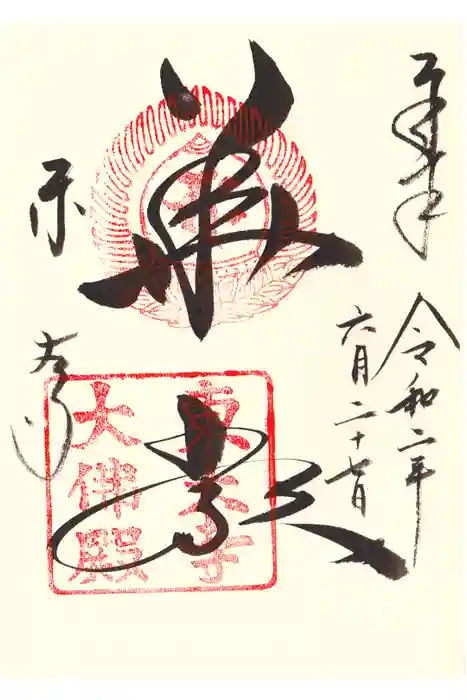 奉拝
令和二年
六月二十七日
華厳
東大寺
東大寺
大佛殿